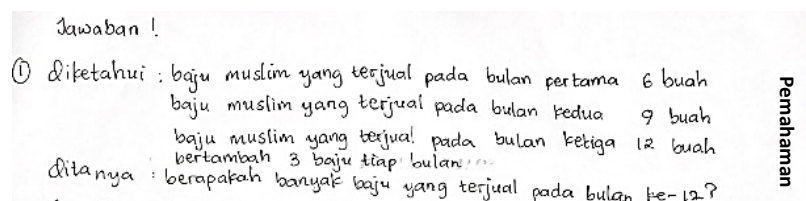 Jawaban !
① Diketahui : baju muslim yang terjual pada bulan pertama 6 buah
baju muslim yang terjual pada bulan kedua 9 buah
baju muslim yang terjual pada bulan ketiga 12 buah
bertambah 3 baju tiap bulan
Ditanya : berapakah banyak baju yang terjual pada bulan ke-12?
Pemahaman